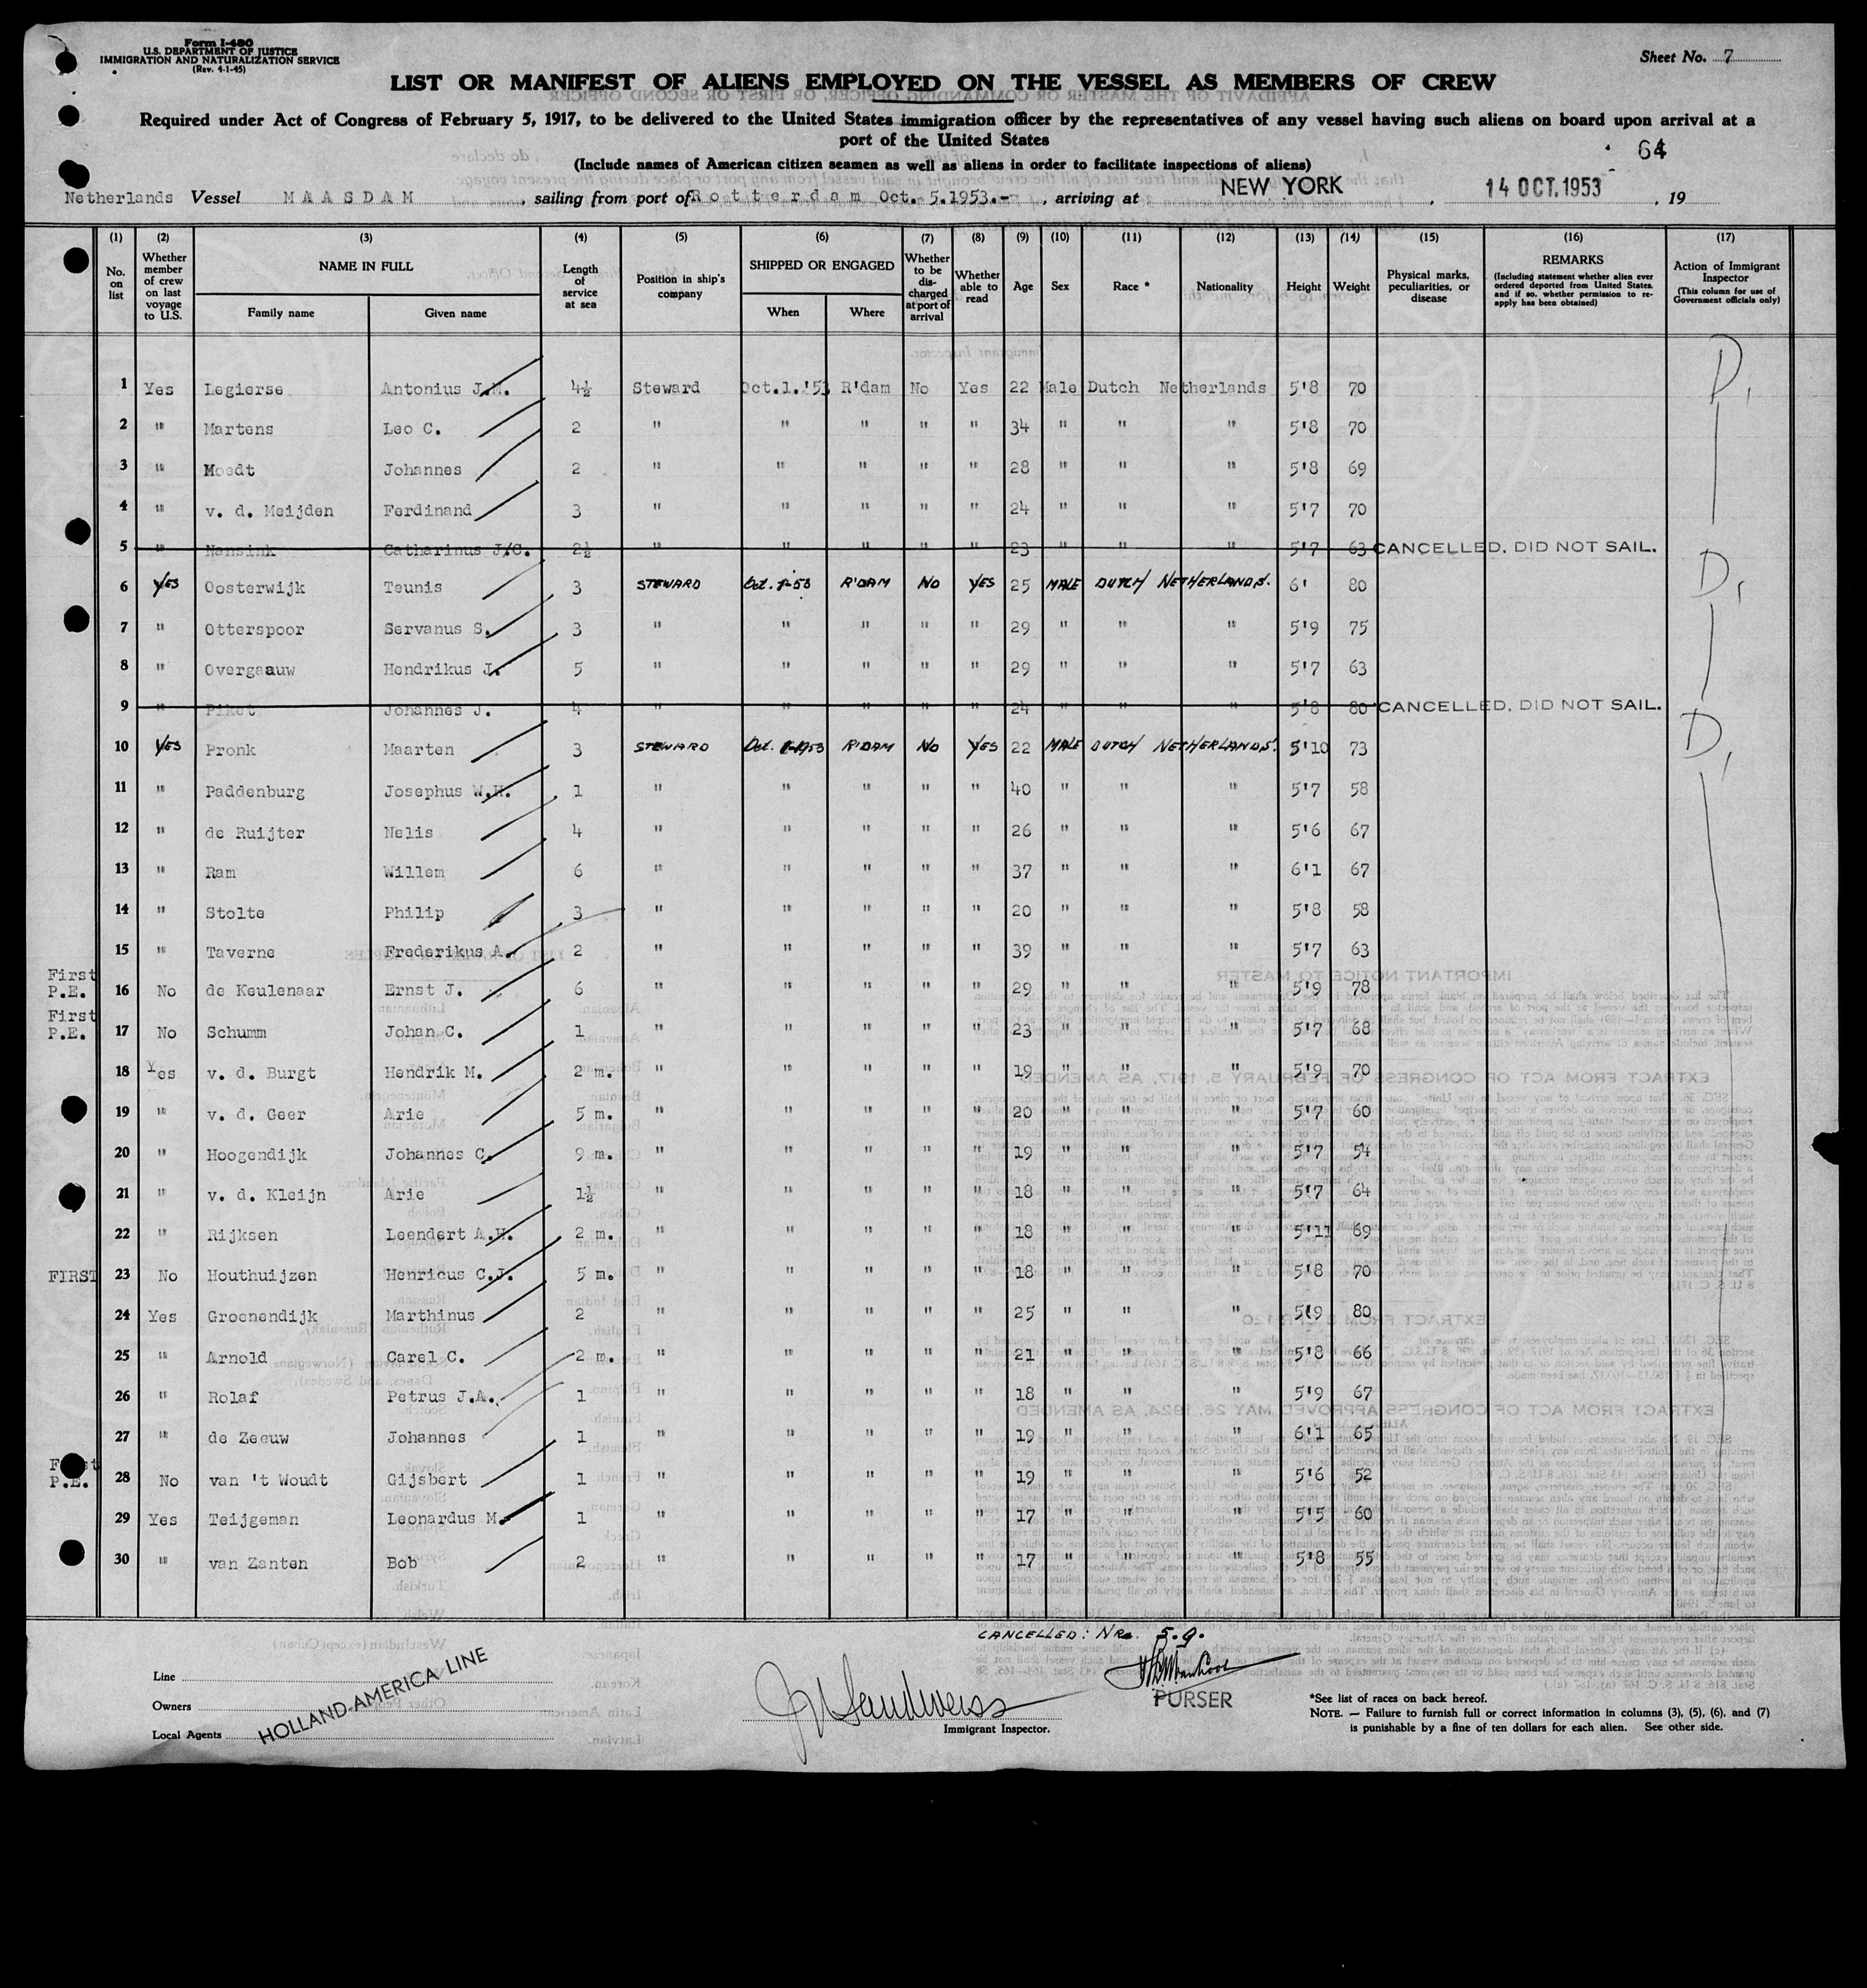 Form I-480
U.S. DEPARTMENT OF JUSTICE
IMMIGRATION AND NATURALIZATION SERVICE
(Rev. 4-1-45)
Sheet No. 7
LIST OR MANIFEST OF ALIENS EMPLOYED ON THE VESSEL AS MEMBERS OF CREW
Required under Act of Congress of February 5, 1917, to be delivered to the United States immigration officer by the representatives of any vessel having such aliens on board upon arrival at a
port of the United States
64
(Include names of American citizen seamen as well as aliens in order to facilitate inspections of aliens)
Netherlands Vessel MAASDAM, sailing from port of Rotterdam Oct. 5.1953.-, arriving at NEW YORK, 14 OCT.1953, 19
(1) (2) (3) (4) (5) (6) (7) (8) (9) (10) (11) (12) (13) (14) (15) (16) (17)
No. on list
Whether member of crew on last voyage to U.S.
NAME IN FULL
Family name
Given name
Length of service at sea
Position in ship's company
SHIPPED OR ENGAGED
When
Where
Whether to be discharged at port of arrival
Whether able to read
Age
Sex
Race *
Nationality
Height
Weight
Physical marks, peculiarities, or disease
REMARKS
(Including statement whether alien ever ordered deported from United States, and if so, whether permission to reapply has been obtained)
Action of Immigrant Inspector
(This column for use of Government officials only)
1 Yes Legierse Antonius J.M. 4½ Steward Oct.1.'53 R'dam No Yes 22 Male Dutch Netherlands 5'8 70 D,
2 " Martens Leo C. 2 " " " " " 34 " " " 5'8 70
3 " Moedt Johannes 2 " " " " " 28 " " " 5'8 69
4 " v. d. Meijden Ferdinand 3 " " " " " 24 " " " 5'7 70
5 " Nansink Catharinus J/C. 2½ " " " " " 23 " " " 5'7 63 CANCELLED, DID NOT SAIL.
6 YES Oosterwijk Teunis 3 STEWARD Oct. 1-53 R'DAM NO YES 25 MALE DUTCH NETHERLANDS. 6' 80 D,
7 " Otterspoor Servanus S. 3 " " " " " 29 " " " 5'9 75
8 " Overgaauw Hendrikus J. 5 " " " " " 29 " " " 5'7 63
9 " Piket Johannes J. 4 " " " " " 24 " " " 5'8 80 CANCELLED, DID NOT SAIL.
10 YES Pronk Maarten 3 STEWARD Oct. 1-1953 R'DAM NO YES 22 MALE DUTCH NETHERLANDS. 5'10 73 D,
11 " Paddenburg Josephus W.H. 1 " " " " " 40 " " " 5'7 58
12 " de Ruijter Nelis 4 " " " " " 26 " " " 5'6 67
13 " Ram Willem 6 " " " " " 37 " " " 6'1 67
14 " Stolte Philip 3 " " " " " 20 " " " 5'8 58
15 " Taverne Frederikus A. 2 " " " " " 39 " " " 5'7 63
First P.E. 16 No de Keulenaar Ernst J. 6 " " " " " 29 " " " 5'9 78
First P.E. 17 No Schumm Johan C. 1 " " " " " 23 " " " 5'7 68
18 Yes v. d. Burgt Hendrik M. 2 m. " " " " " 19 " " " 5'9 70
19 " v. d. Geer Arie 5 m. " " " " " 20 " " " 5'7 60
20 " Hoogendijk Johannes C. 9 m. " " " " " 19 " " " 5'7 54
21 " v. d. Kleijn Arie 1½ " " " " " 18 " " " 5'7 64
22 " Rijksen Leendert A.H. 2 m. " " " " " 18 " " " 5'11 69
FIRST 23 No Houthuijzen Henricus C.J. 5 m. " " " " " 18 " " " 5'8 70
24 Yes Groenendijk Marthinus 2 " " " " " 25 " " " 5'9 80
25 " Arnold Carel C. 2 m. " " " " " 21 " " " 5'8 66
26 " Rolaf Petrus J.A. 1 " " " " " 18 " " " 5'9 67
27 " de Zeeuw Johannes 1 " " " " " 19 " " " 6'1 65
First P.E. 28 No van 't Woudt Gijsbert 1 " " " " " 19 " " " 5'6 52
29 Yes Teijgeman Leonardus M. 1 " " " " " 17 " " " 5'5 60
30 " van Zanten Bob 2 " " " " " 17 " " " 5'8 55
CANCELLED: Nrs. 5.9.
Line
Owners
Local Agents
HOLLAND-AMERICA LINE
Immigrant Inspector.
PURSER
*See list of races on back hereof.
NOTE. — Failure to furnish full or correct information in columns (3), (5), (6), and (7)
is punishable by a fine of ten dollars for each alien. See other side.